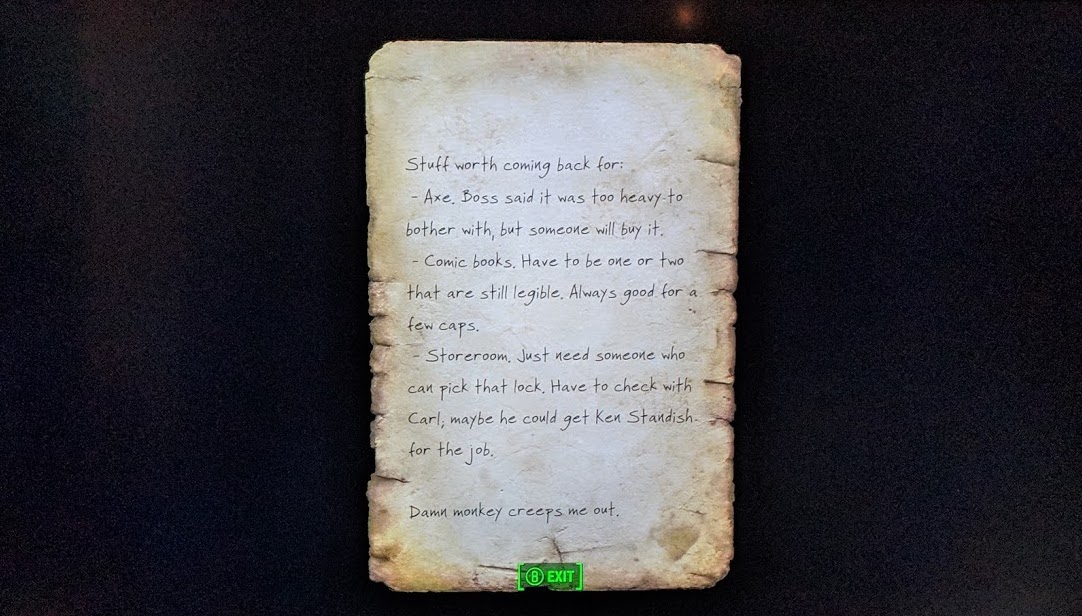 Stuff worth coming back for:
- Axe. Boss said it was too heavy to
bother with, but someone will buy it.
- Comic books. Have to be one or two
that are still legible. Always good for a
few caps.
- Storeroom. Just need someone who
can pick that lock. Have to check with
Carl, maybe he could get Ken Standish
for the job.
Damn monkey creeps me out.
B EXIT